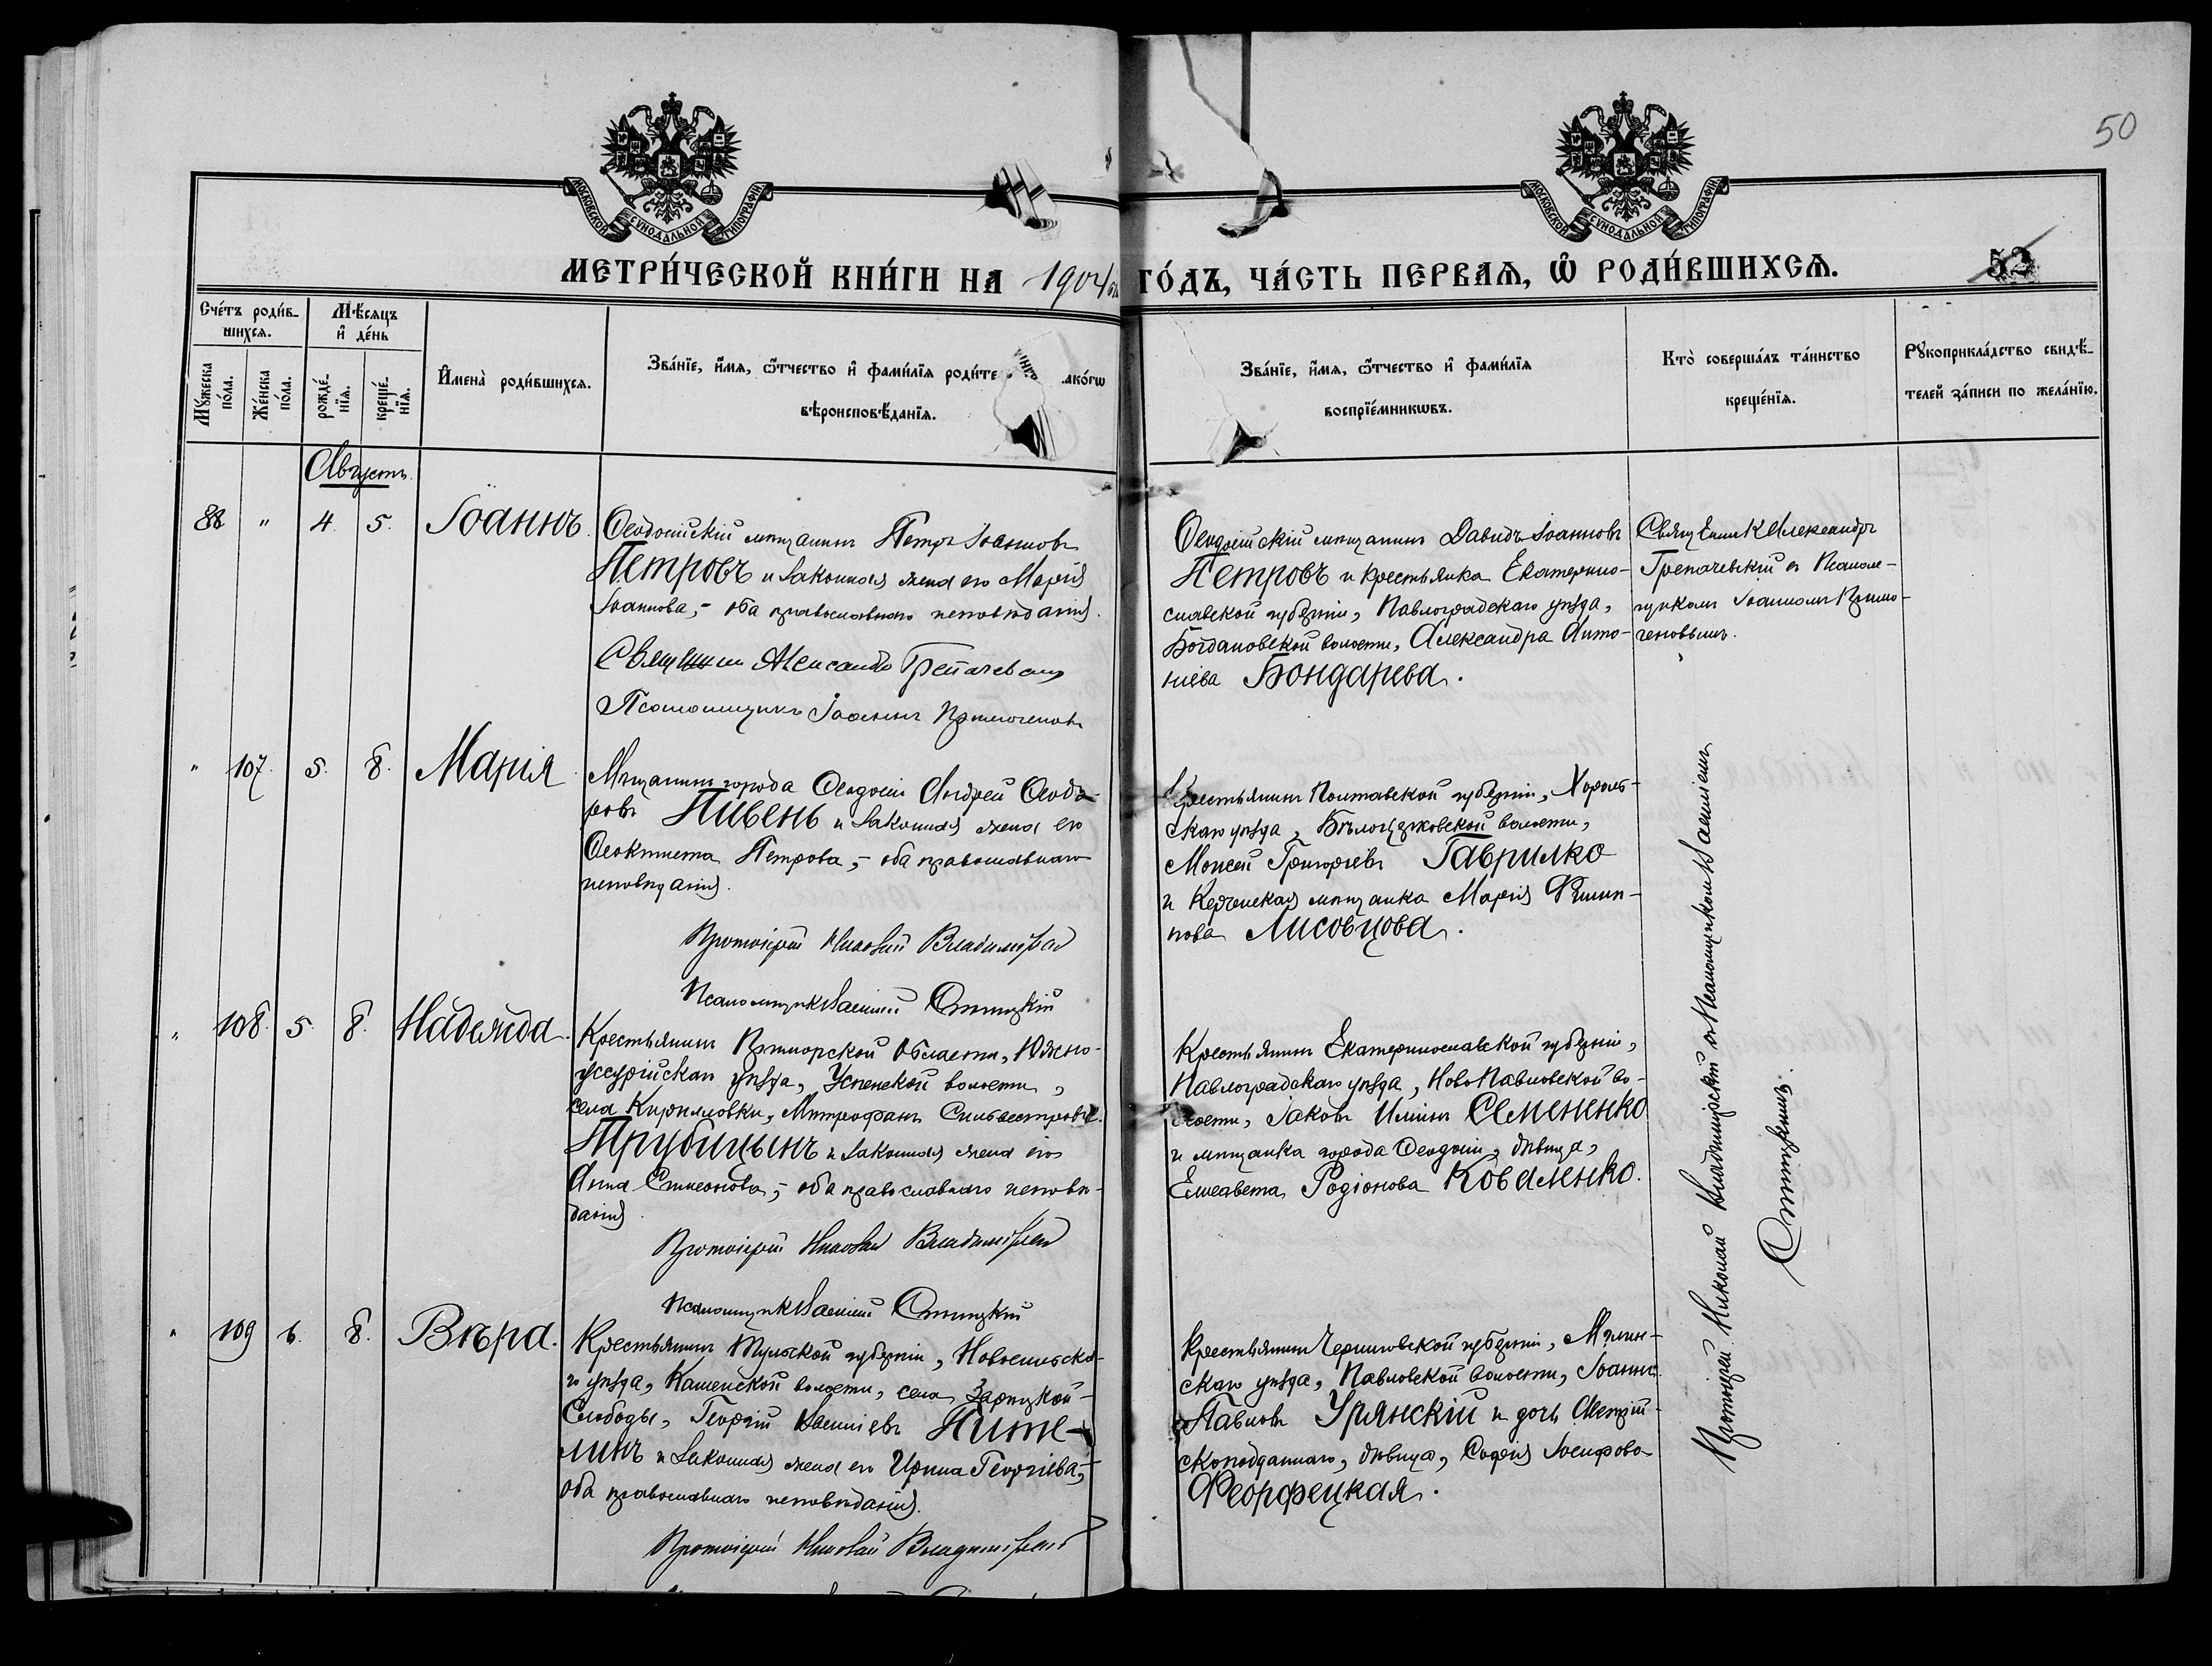 50
МОСКОВСКОЙ СѴНОДАЛЬНОЙ ТИПОГРАФІИ
МОСКОВСКОЙ СѴНОДАЛЬНОЙ ТИПОГРАФІИ
МЕТРИ́ЧЕСКОЙ КНИ́ГИ НА 1904 ГО́ДЪ, ЧА́СТЬ ПЕРВАѦ, Ѡ҆ РОДИ́ВШИХСѦ.
Сче́тъ роди́в-
шихсѧ.
Мѣ́сѧцъ
и҆ де́нь
Мꙋ́жеска
по́ла.
Же́нска
по́ла.
рожде́-
нїѧ.
креще́-
нїѧ.
И҆мена̀ роди́вшихсѧ.
Зва́нїе, и҆́мѧ, ѻ҆́тчество и҆ фами́лїѧ роди́те
ако́гѡ
вѣроисповѣ́данїѧ.
Зва́нїе, и҆́мѧ, ѻ҆́тчество и҆ фами́лїѧ
воспрїе́мникѡвъ.
Кто̀ соверша́лъ та́инство
креще́нїѧ.
Рꙋкоприкла́дство свидѣ́-
телей за́писи по жела́нїю.
Августъ.
88 " 4. 5. Іоаннъ.
Ѳеодосійскій мѣщанинъ Петръ Іоанновъ
Петровъ и законная жена его Марія
Іоаннова, - оба православнаго исповѣданія.
Священник Александръ
Псаломщикъ Іоаннъ
Ѳеодосійскій мѣщанинъ Давидъ Іоанновъ
Петровъ и крестьянка Екатерино-
славской губерніи, Павлоградскаго уѣзда,
Богдановской волости, Александра Анто-
ніева Бондарева.
Священник Александръ
съ Псалом-
щикомъ Іоанномъ
" 107. 5. 8. Марія
Мѣщанинъ города Ѳеодосіи Андрей Ѳеодо-
ровъ Пивень и законная жена его
Ѳеоктиста Петрова, - оба православнаго
исповѣданія.
Протоіерей Николай Владимірскій
Псаломщикъ Василій
Крестьянинъ Полтавской губерніи, Хороль-
скаго уѣзда, Бѣлоцерковской волости,
Моисей Григоріевъ Гаврилко
и Керченская мѣщанка Марія Филип-
пова Лисовцова.
" 108. 5. 8. Надежда.
Крестьянинъ Приморской Области, Южно-
уссурійскаго уѣзда, Успенской волости,
села Кирилловки, Митрофанъ Сильвестровъ
Трубицынъ и законная жена его
Анна Симеонова, - оба православнаго исповѣ-
данія.
Протоіерей Николай Владимірскій
Псаломщикъ Василій
Крестьянинъ Екатеринославской губерніи,
Павлоградскаго уѣзда, НовоПавловской во-
лости, Іаковъ Ильинъ Семененко
и мѣщанка города Ѳеодосіи, дѣвица,
Елисавета Родіонова Коваленко.
" 109 6. 8. Вѣра.
Крестьянинъ Тульской губерніи, Новосильска-
го уѣзда, Каменской волости, села
Слободы, Георгій Василіевъ Ните-
линъ и законная жена его Ирина Георгіева, -
оба православнаго исповѣданія.
Протоіерей Николай Владимірскій
Крестьянинъ Черниговской губерніи, Мглин-
скаго уѣзда, Павловской волости, Іоаннъ
Павловъ Урянскій и дочь Австрій-
скоподданнаго, дѣвица, Софія Іосифова
Феорфецкая.
Протоіерей Николай Владимірскій съ Псаломщикомъ Василіемъ